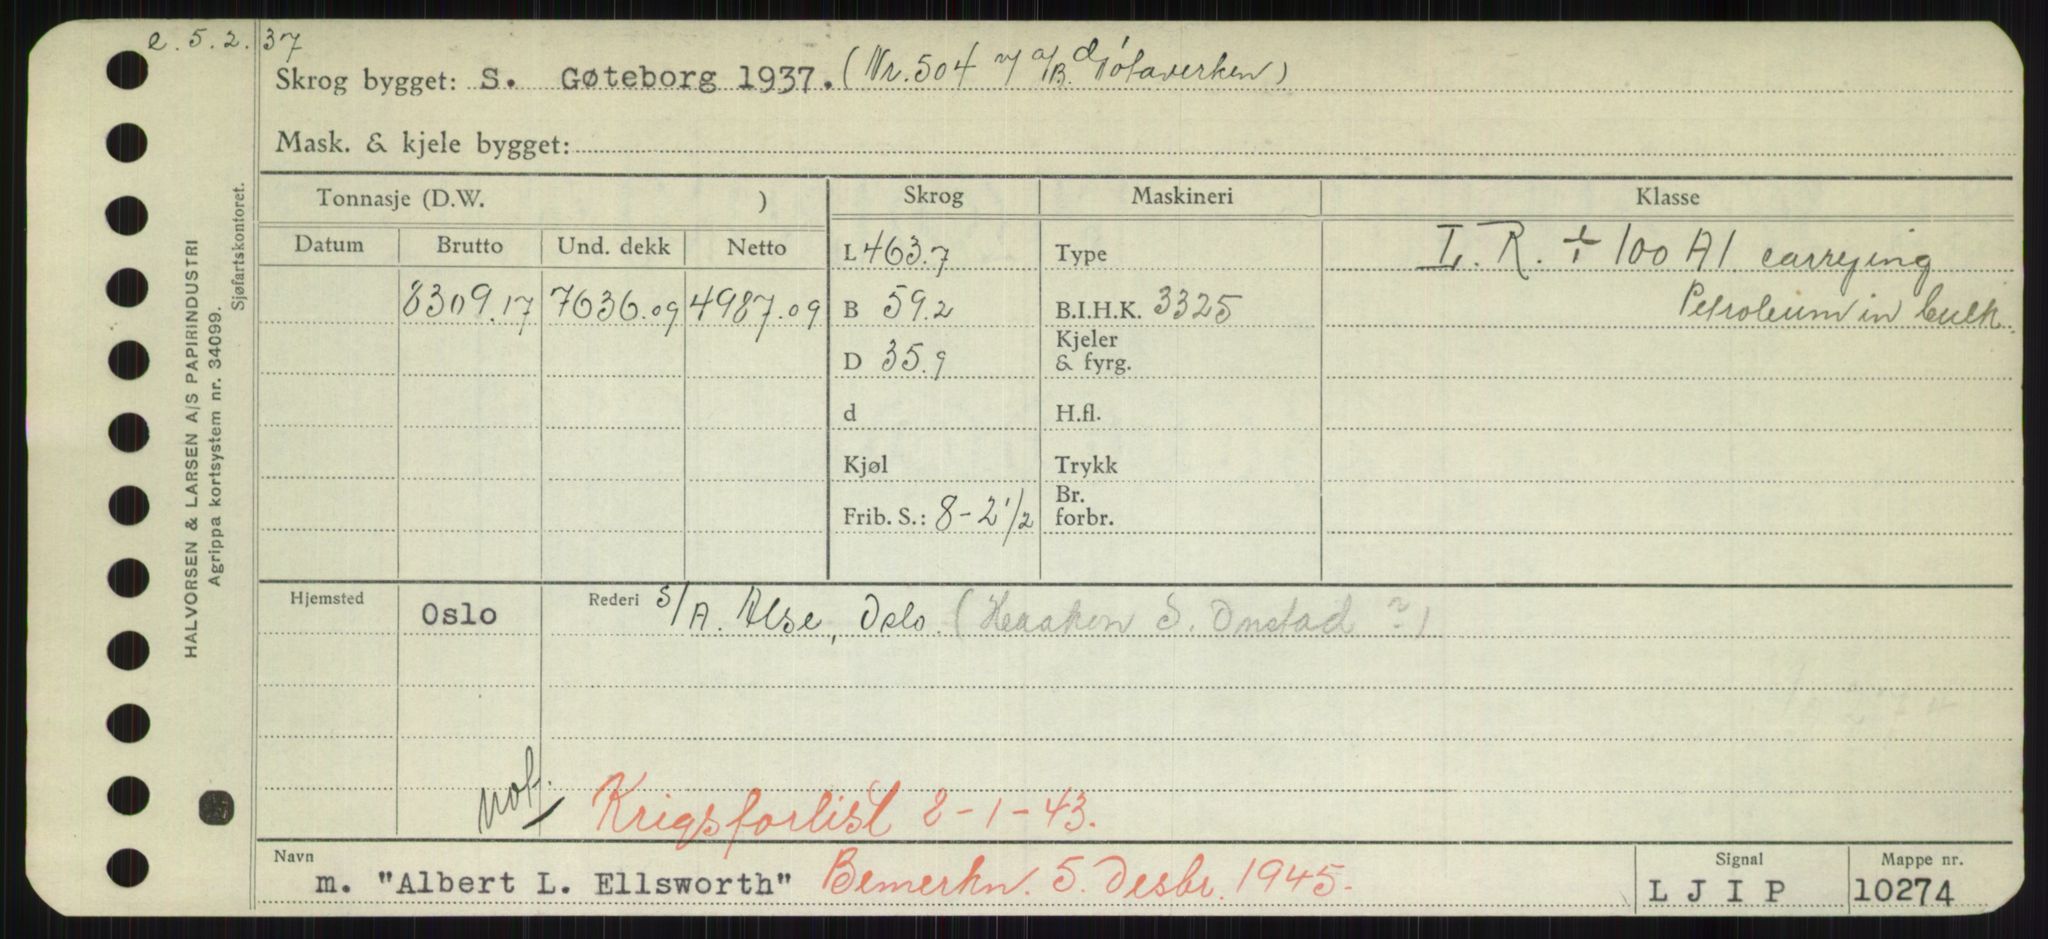 e. 5. 2. 37
Skrog bygget: S. Gøteborg 1937. (Nr. 504 v/ A/B. Götaverken)
Mask. & kjele bygget:
Tonnasje (D.W. )
Skrog
Maskineri
Klasse
Datum Brutto Und. dekk Netto
8309.17 7636.09 4987.09
L 463.7
B 59.2
D 35.9
d
Kjøl
Frib. S.: 8-2 1/2
Type
B.I.H.K. 3325
Kjeler
& fyrg.
H.fl.
Trykk
Br.
forbr.
L. R. + 100 A1 carrying
Petroleum in bulk.
Hjemsted Oslo
Rederi S/A. Alse, Oslo. (Haakon S. Onstad ?)
not.
Krigsforlist 2-1-43.
Navn
m. "Albert L. Ellsworth" Bemerkn. 5. Desbr. 1945.
Signal
L J I P
Mappe nr.
10274
HALVORSEN & LARSEN A/S PAPIRINDUSTRI
Agrippa kortsystem nr. 34099.
Sjøfartskontoret.